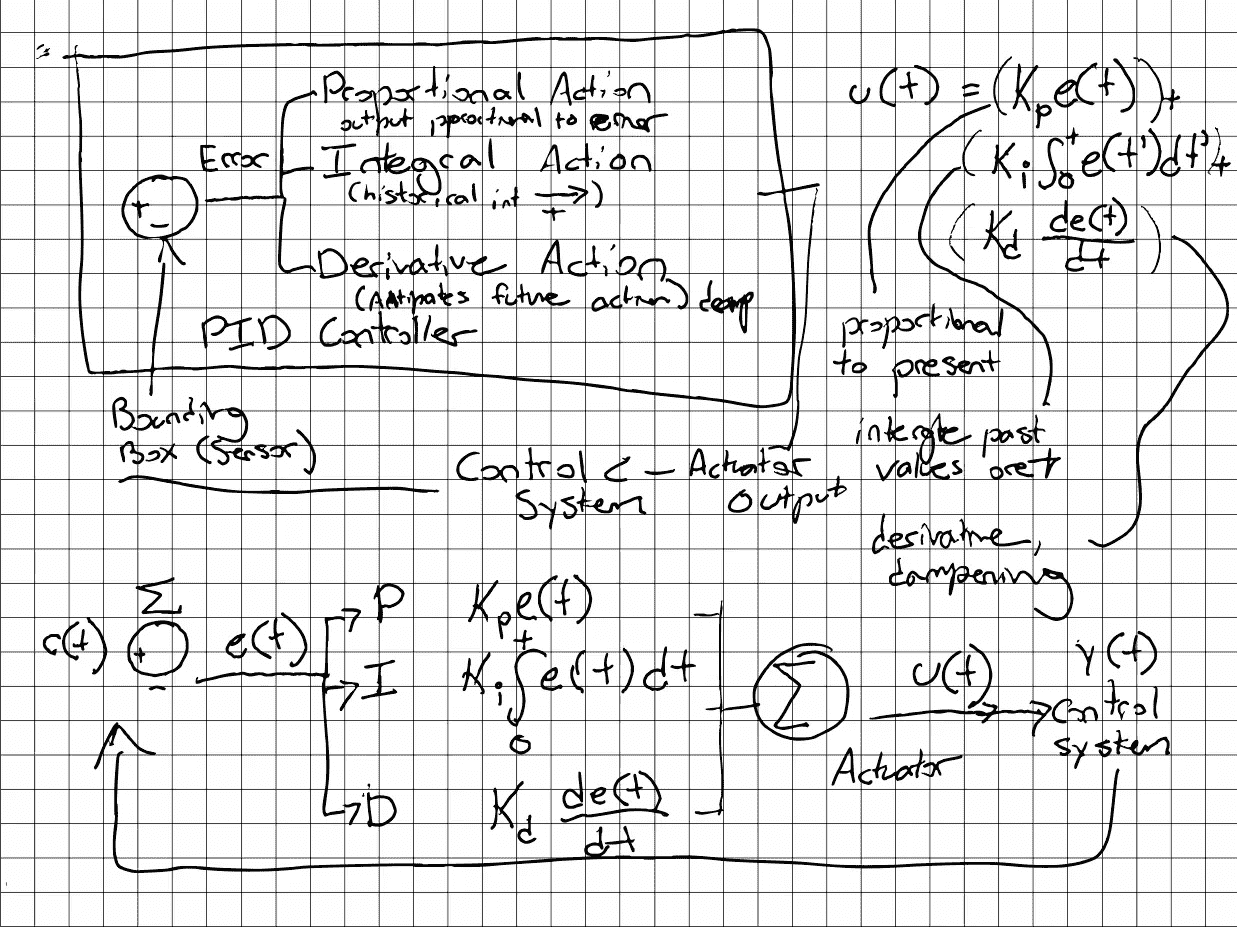 Proportional Action
output proportional to error
Error
Integral Action
(historical int → t)
+
-
Derivative Action
(Antipates future action) damp
PID Controller
Bounding
Box (Sensor)
Control
System
Actuator
Output
u(t) = (Kp e(t)) +
(Ki ∫0^t e(t')dt') +
(Kd de(t)/dt)
proportional
to present
past
values
derivative,
dampening
Σ
(t)
+
-
e(t)
P Kp e(t)
I Ki ∫0^t e(t) dt
D Kd de(t)/dt
Σ
Actuator
u(t)
y(t)
Control
system